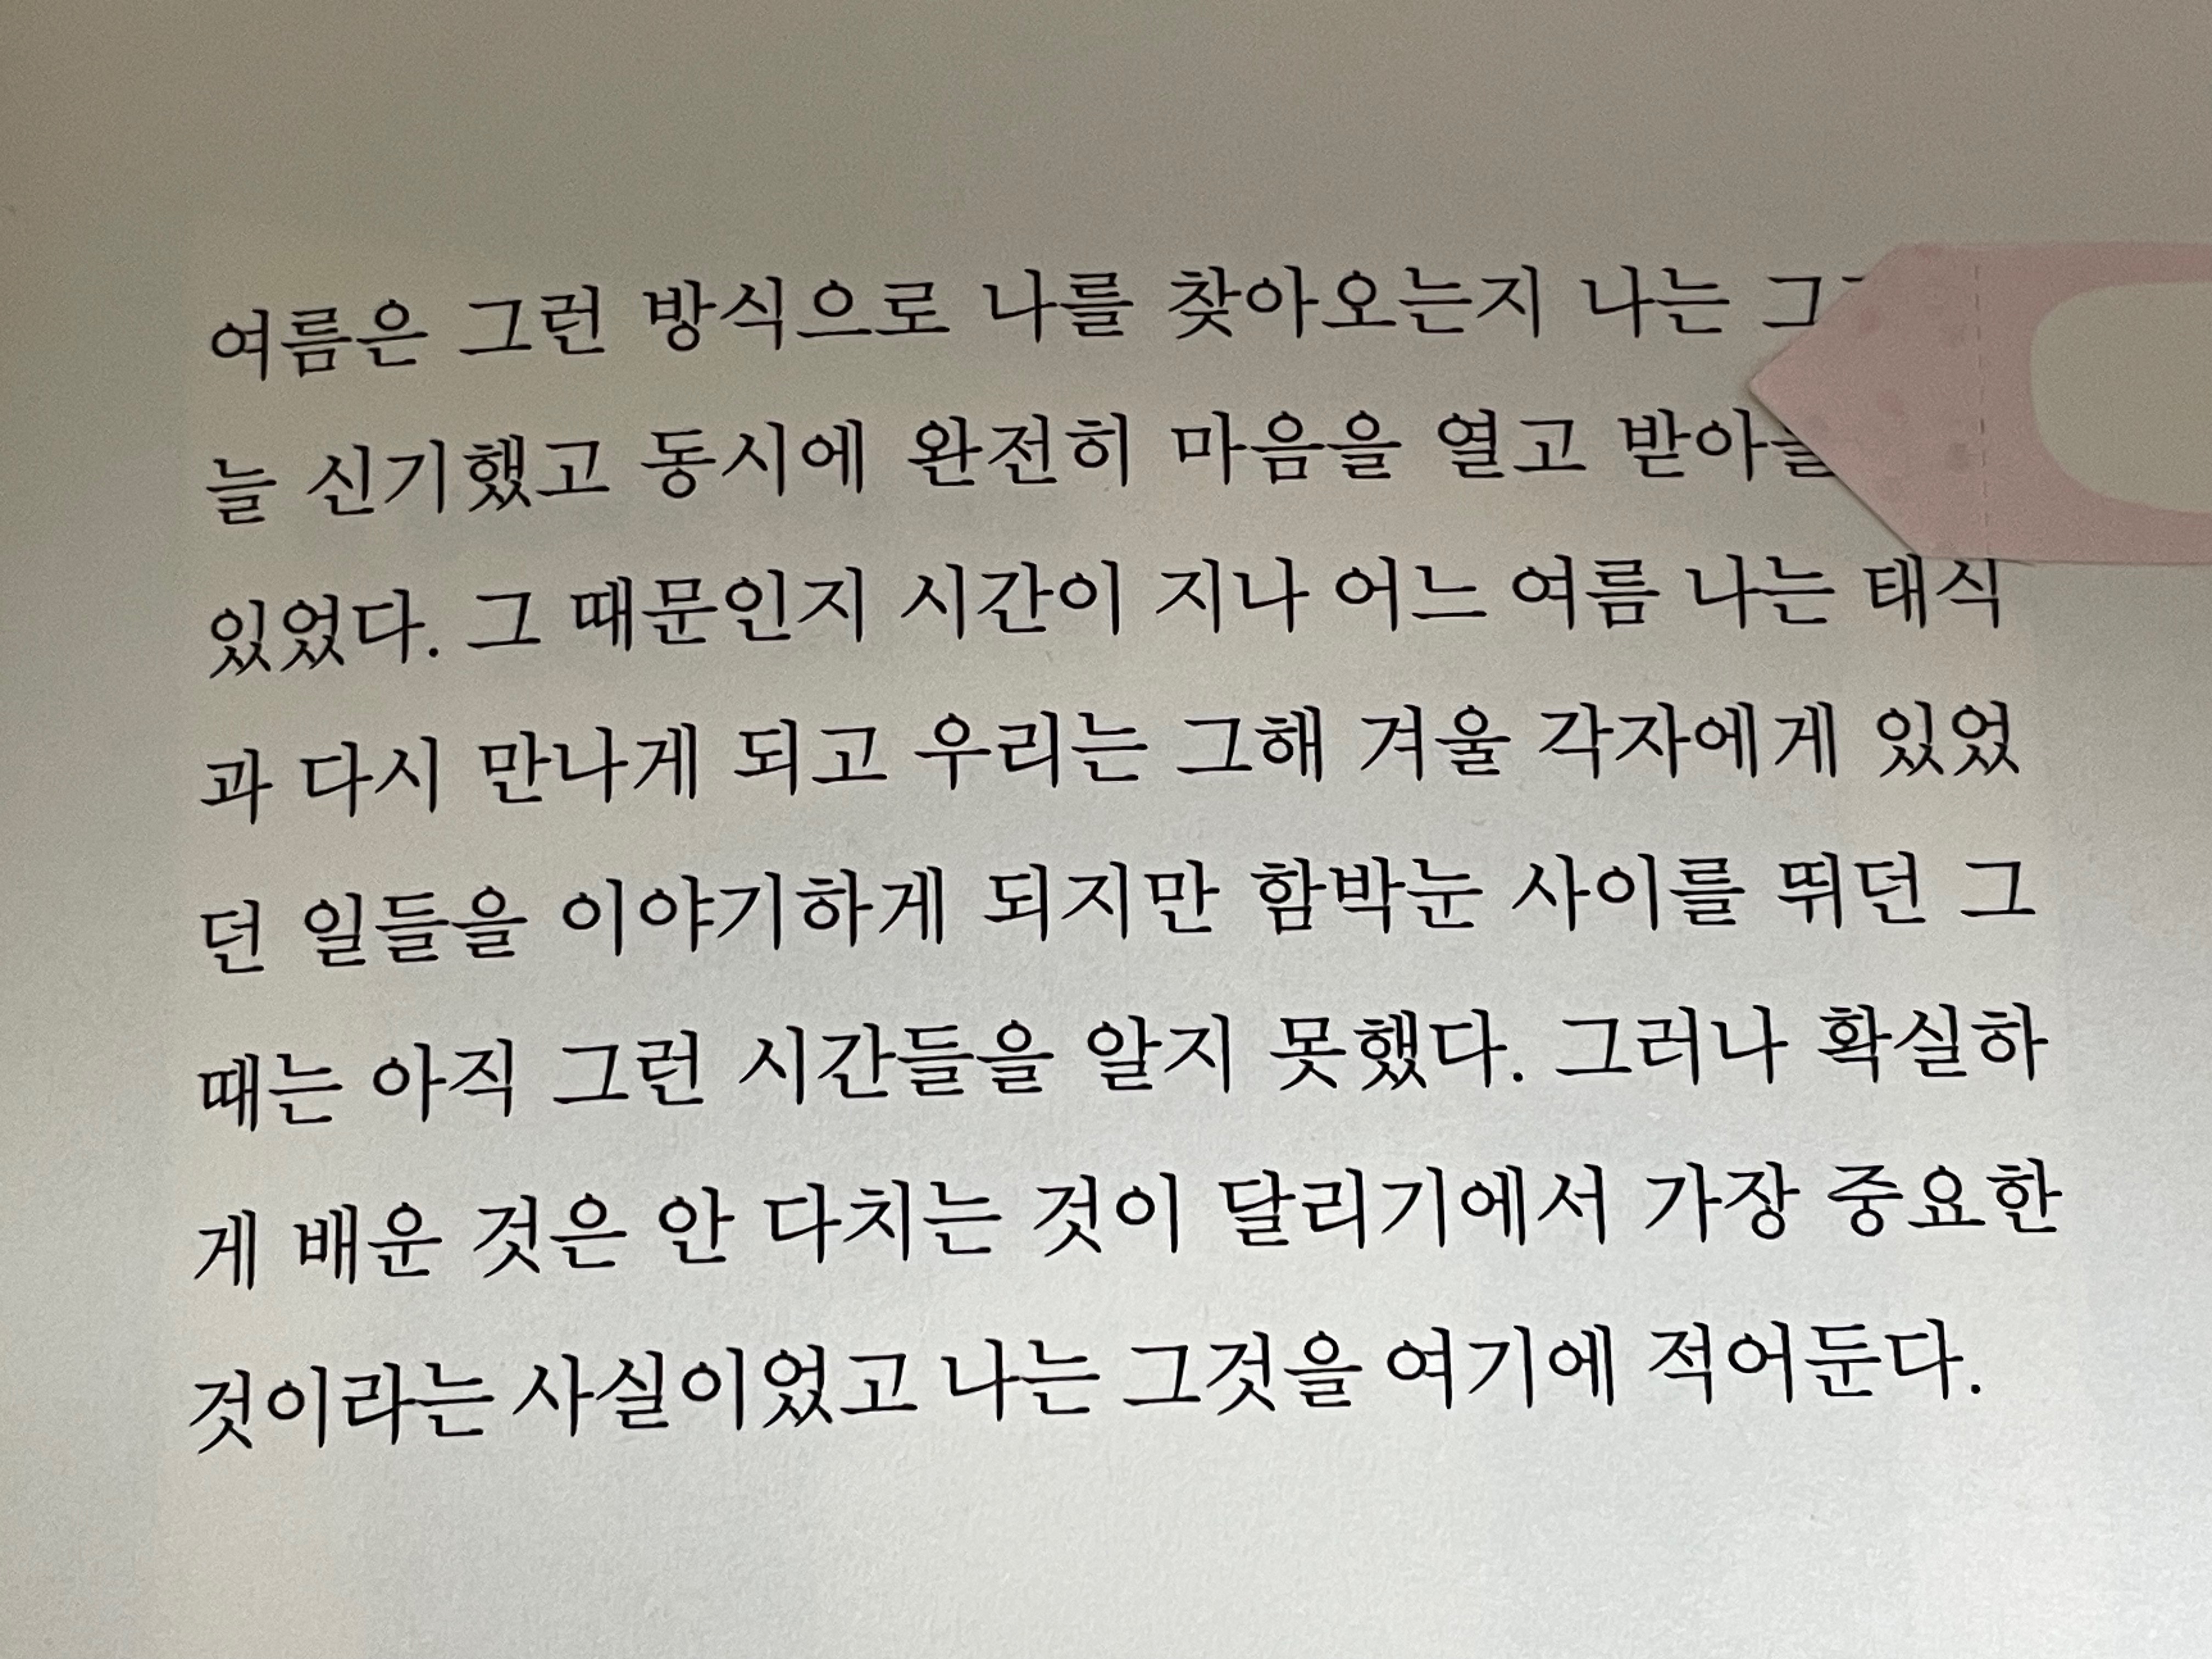 여름은 그런 방식으로 나를 찾아오는지 나는
늘 신기했고 동시에 완전히 마음을 열고
있었다. 그 때문인지 시간이 지나 어느 여름 나는 태식
과 다시 만나게 되고 우리는 그해 겨울 각자에게 있었
던 일들을 이야기하게 되지만 함박눈 사이를 뛰던 그
때는 아직 그런 시간들을 알지 못했다. 그러나 확실하
게 배운 것은 안 다치는 것이 달리기에서 가장 중요한
것이라는 사실이었고 나는 그것을 여기에 적어둔다.